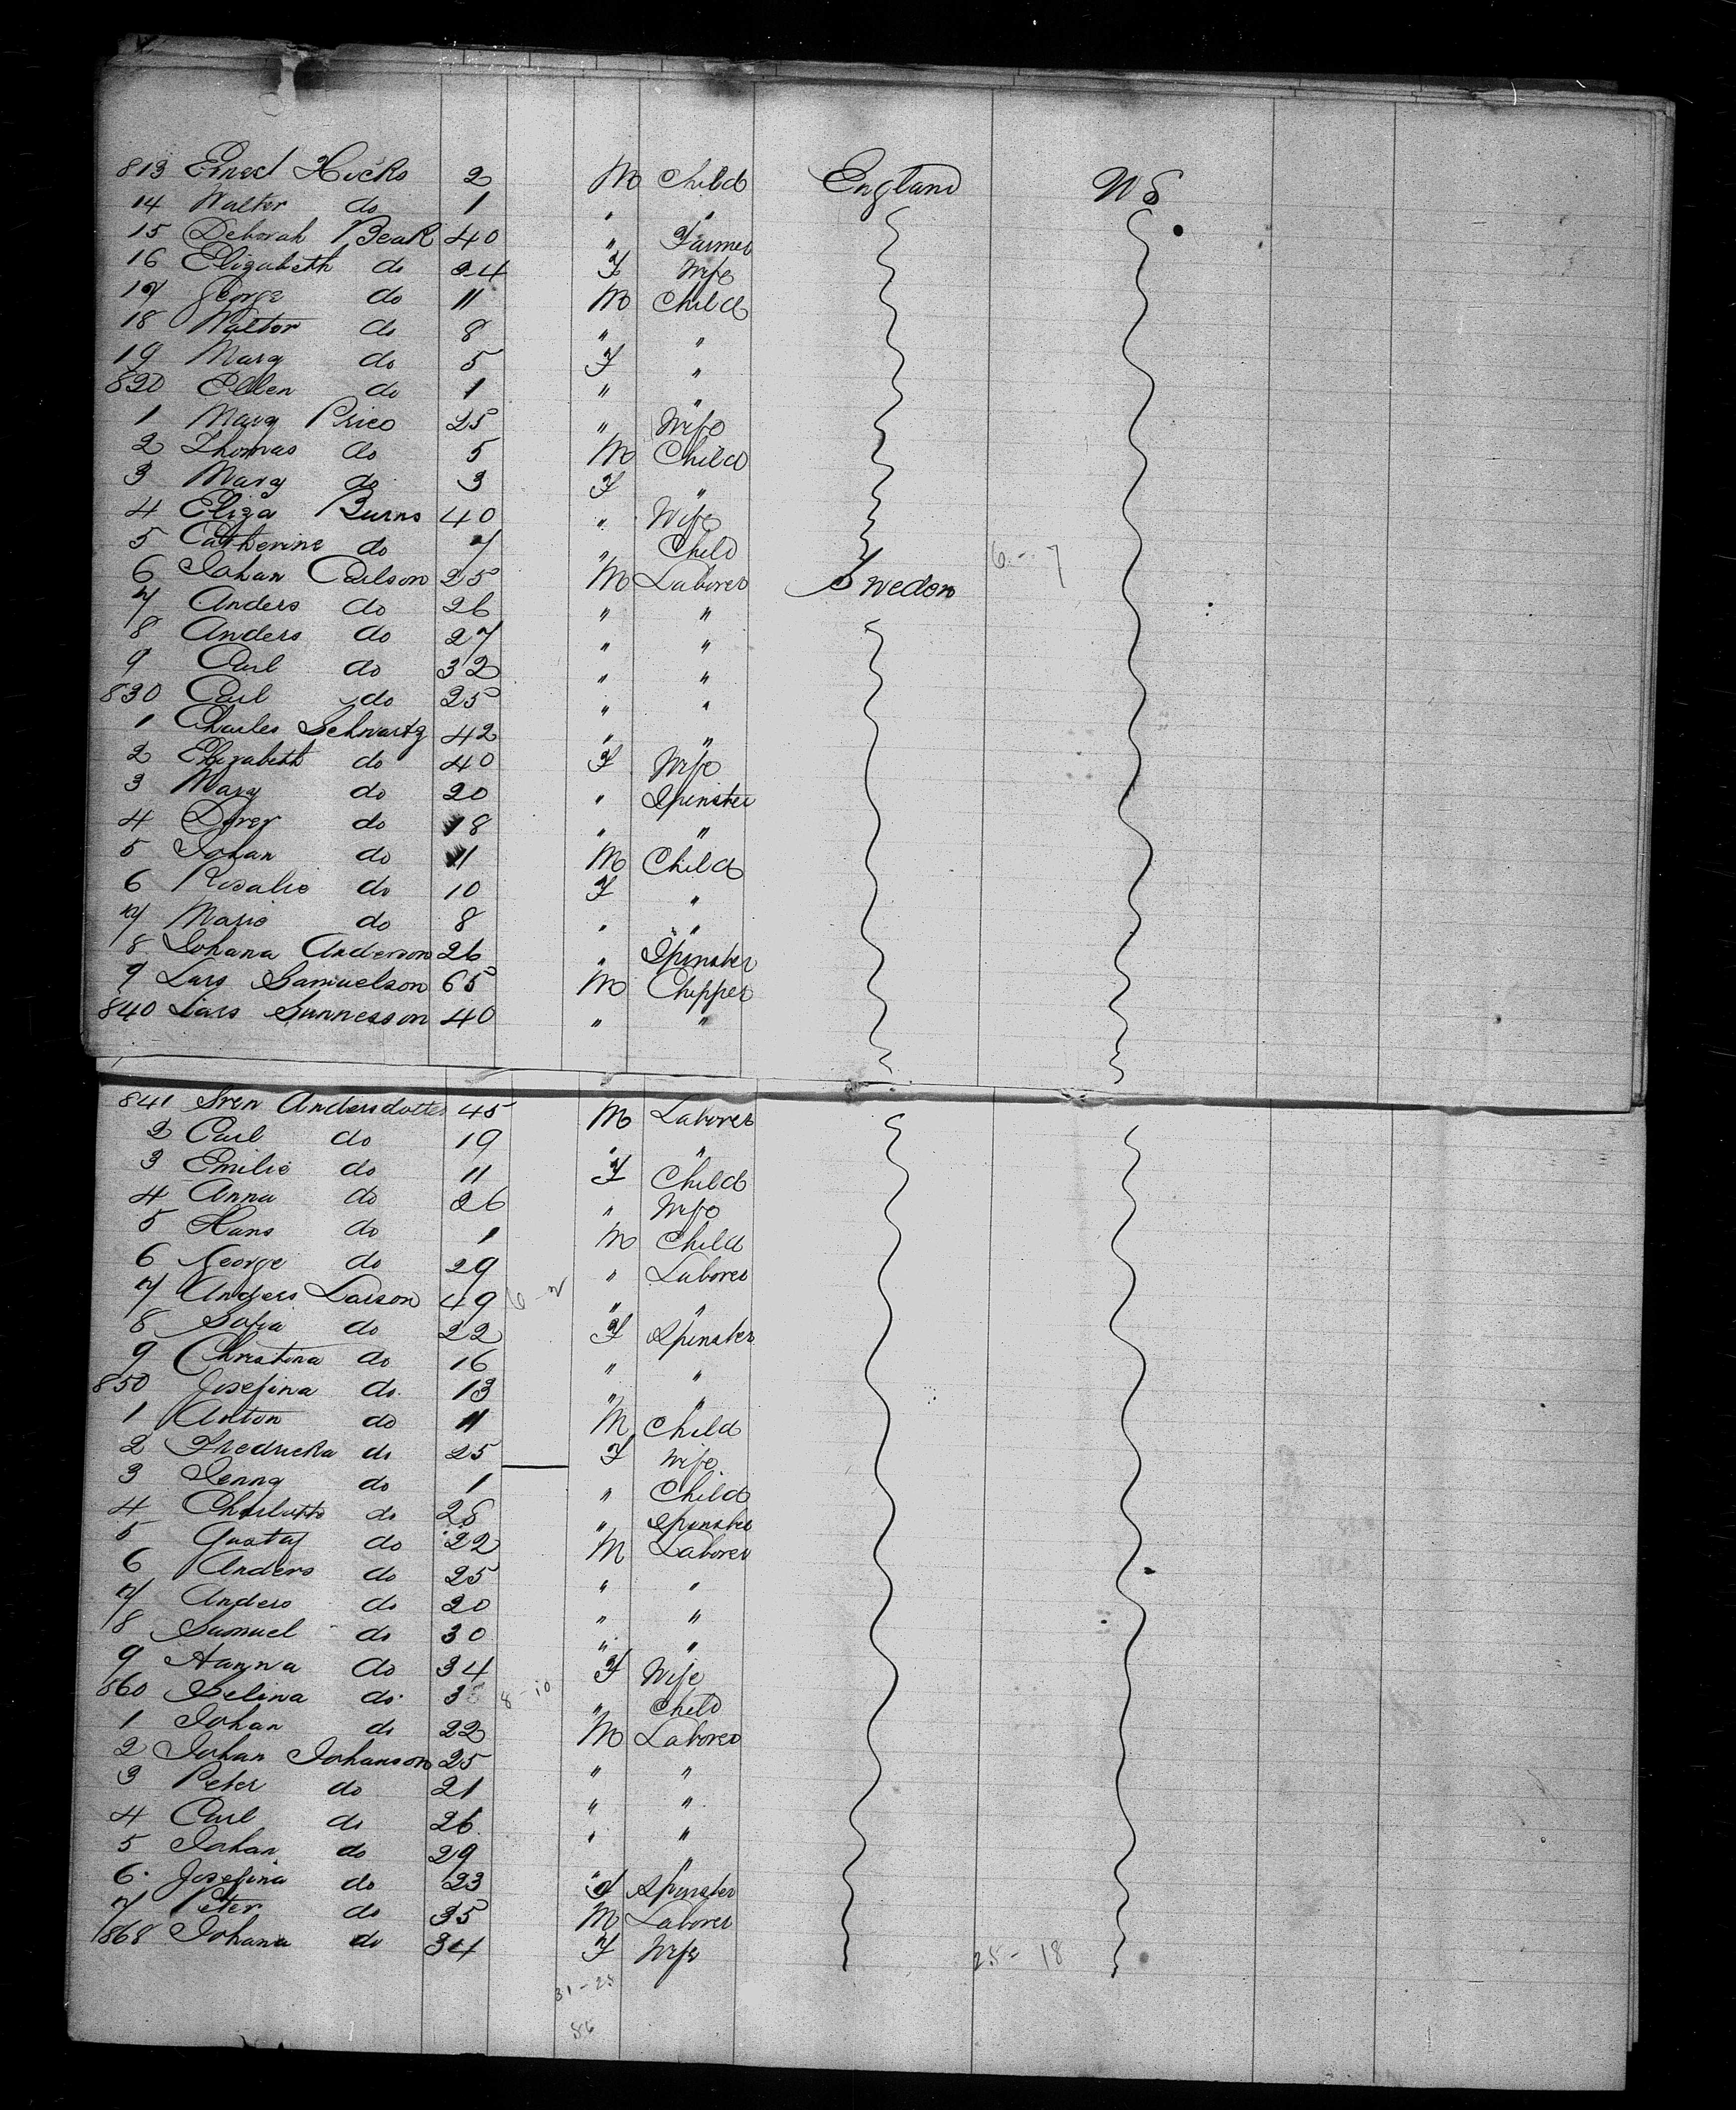 813 Ernest Hicks 2 M Child England U S
14 Walter do 1 " "
15 Deborah Beak 40 " Farmer
16 Elizabeth do 24 F Wife
17 George do 11 M Child
18 Walter do 8 " "
19 Mary do 5 F "
820 Ellen do 1 " "
1 Mary Price 25 " Wife
2 Thomas do 5 M Child
3 Mary do 3 F "
4 Eliza Burns 40 " Wife
5 Catherine do 7 " Child 6 - 7
6 Johan Carlson 25 M Laborer Sweden
7 Anders do 26 " "
8 Anders do 27 " "
9 Carl do 32 " "
830 Carl do 25 " "
1 Charles Schwartz 42 " "
2 Elizabeth do 40 F Wife
3 Mary do 20 " Spinster
4 do 18 " "
5 Johan do 11 M Child
6 Rosalie do 10 F "
7 Marie do 8 " "
8 Johana Anderson 26 " Spinster
9 Lars Samuelson 65 M Chipper
840 Lars Sunnesson 40 " "
841 Sven Andersdotter 45 M Laborer
2 Carl do 19 " "
3 Emilie do 11 F Child
4 Anna do 26 " Wife
5 Hans do 1 M Child
6 George do 29 " Laborer
7 Anders Larson 49 " "
8 Sofia do 22 F Spinster
9 Christina do 16 " "
850 Josefina do 13 " "
1 Anton do 11 M Child
2 Fredricka do 25 F Wife
3 Jenny do 1 " Child
4 Charlotta do 28 " Spinster
5 Gustaf do 22 M Laborer
6 Anders do 25 " "
7 Anders do 20 " "
8 Samuel do 30 " "
9 Hanna do 34 F Wife
860 Selina do 3 8 - 10 " Child
1 Johan do 22 M Laborer
2 Johan Johanson 25 " "
3 Peter do 21 " "
4 Carl do 26 " "
5 Johan do 29 " "
6 Josefina do 23 F Spinster
7 Peter do 35 M Laborer
868 Johana do 34 F Wife 25 - 18
31 - 25
56